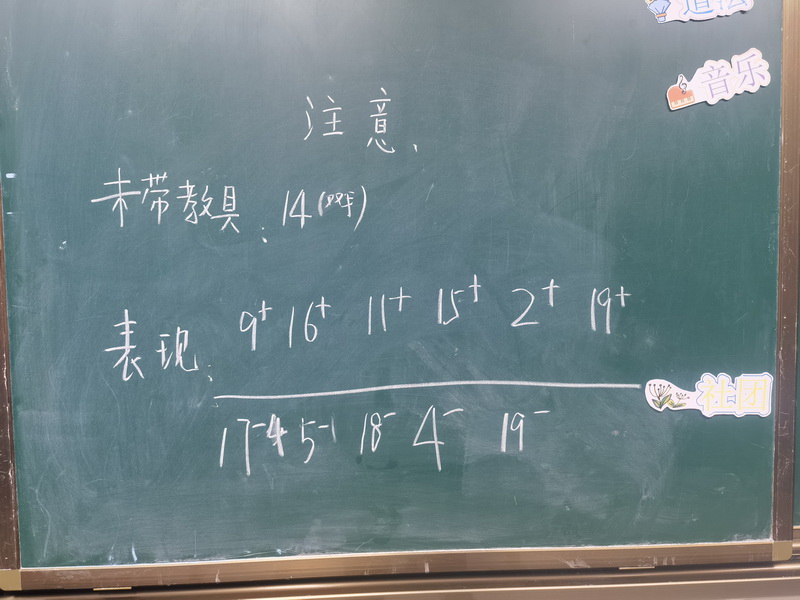 道法
音乐
注意、
未带教具: 14
表现: 9+ 16+ 11+ 15+ 2+ 19+
社团
17-4 5-1 18- 4- 19-